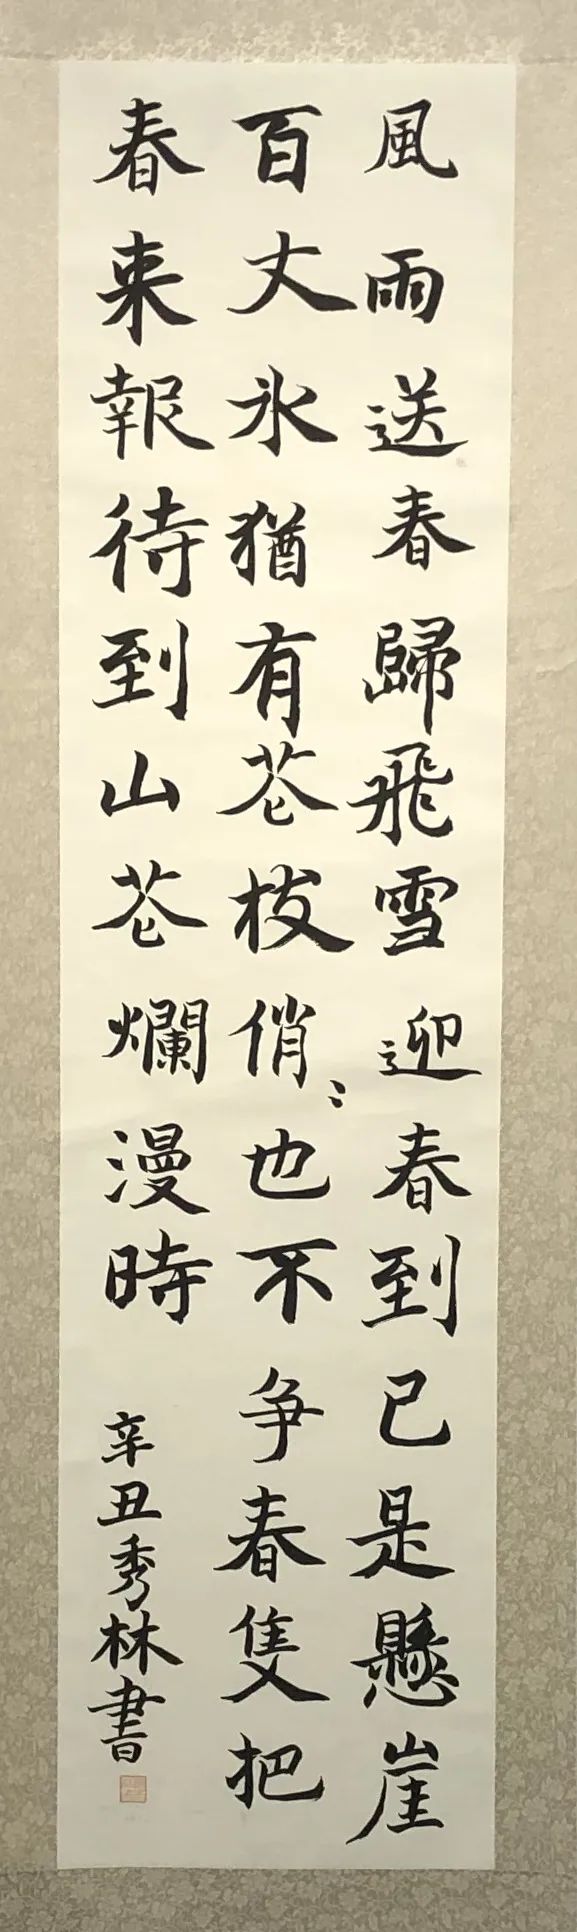 風雨送春歸飛雪迎春到已是懸崖
百丈氷猶有苍枝俏〻也不争春隻把
春来報待到山苍爛漫時
辛丑秀林書